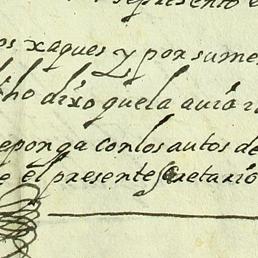 represento e
os xaques y por sume
ho dixo que la auio r
epon ga con los autos de
e el presente Secretario